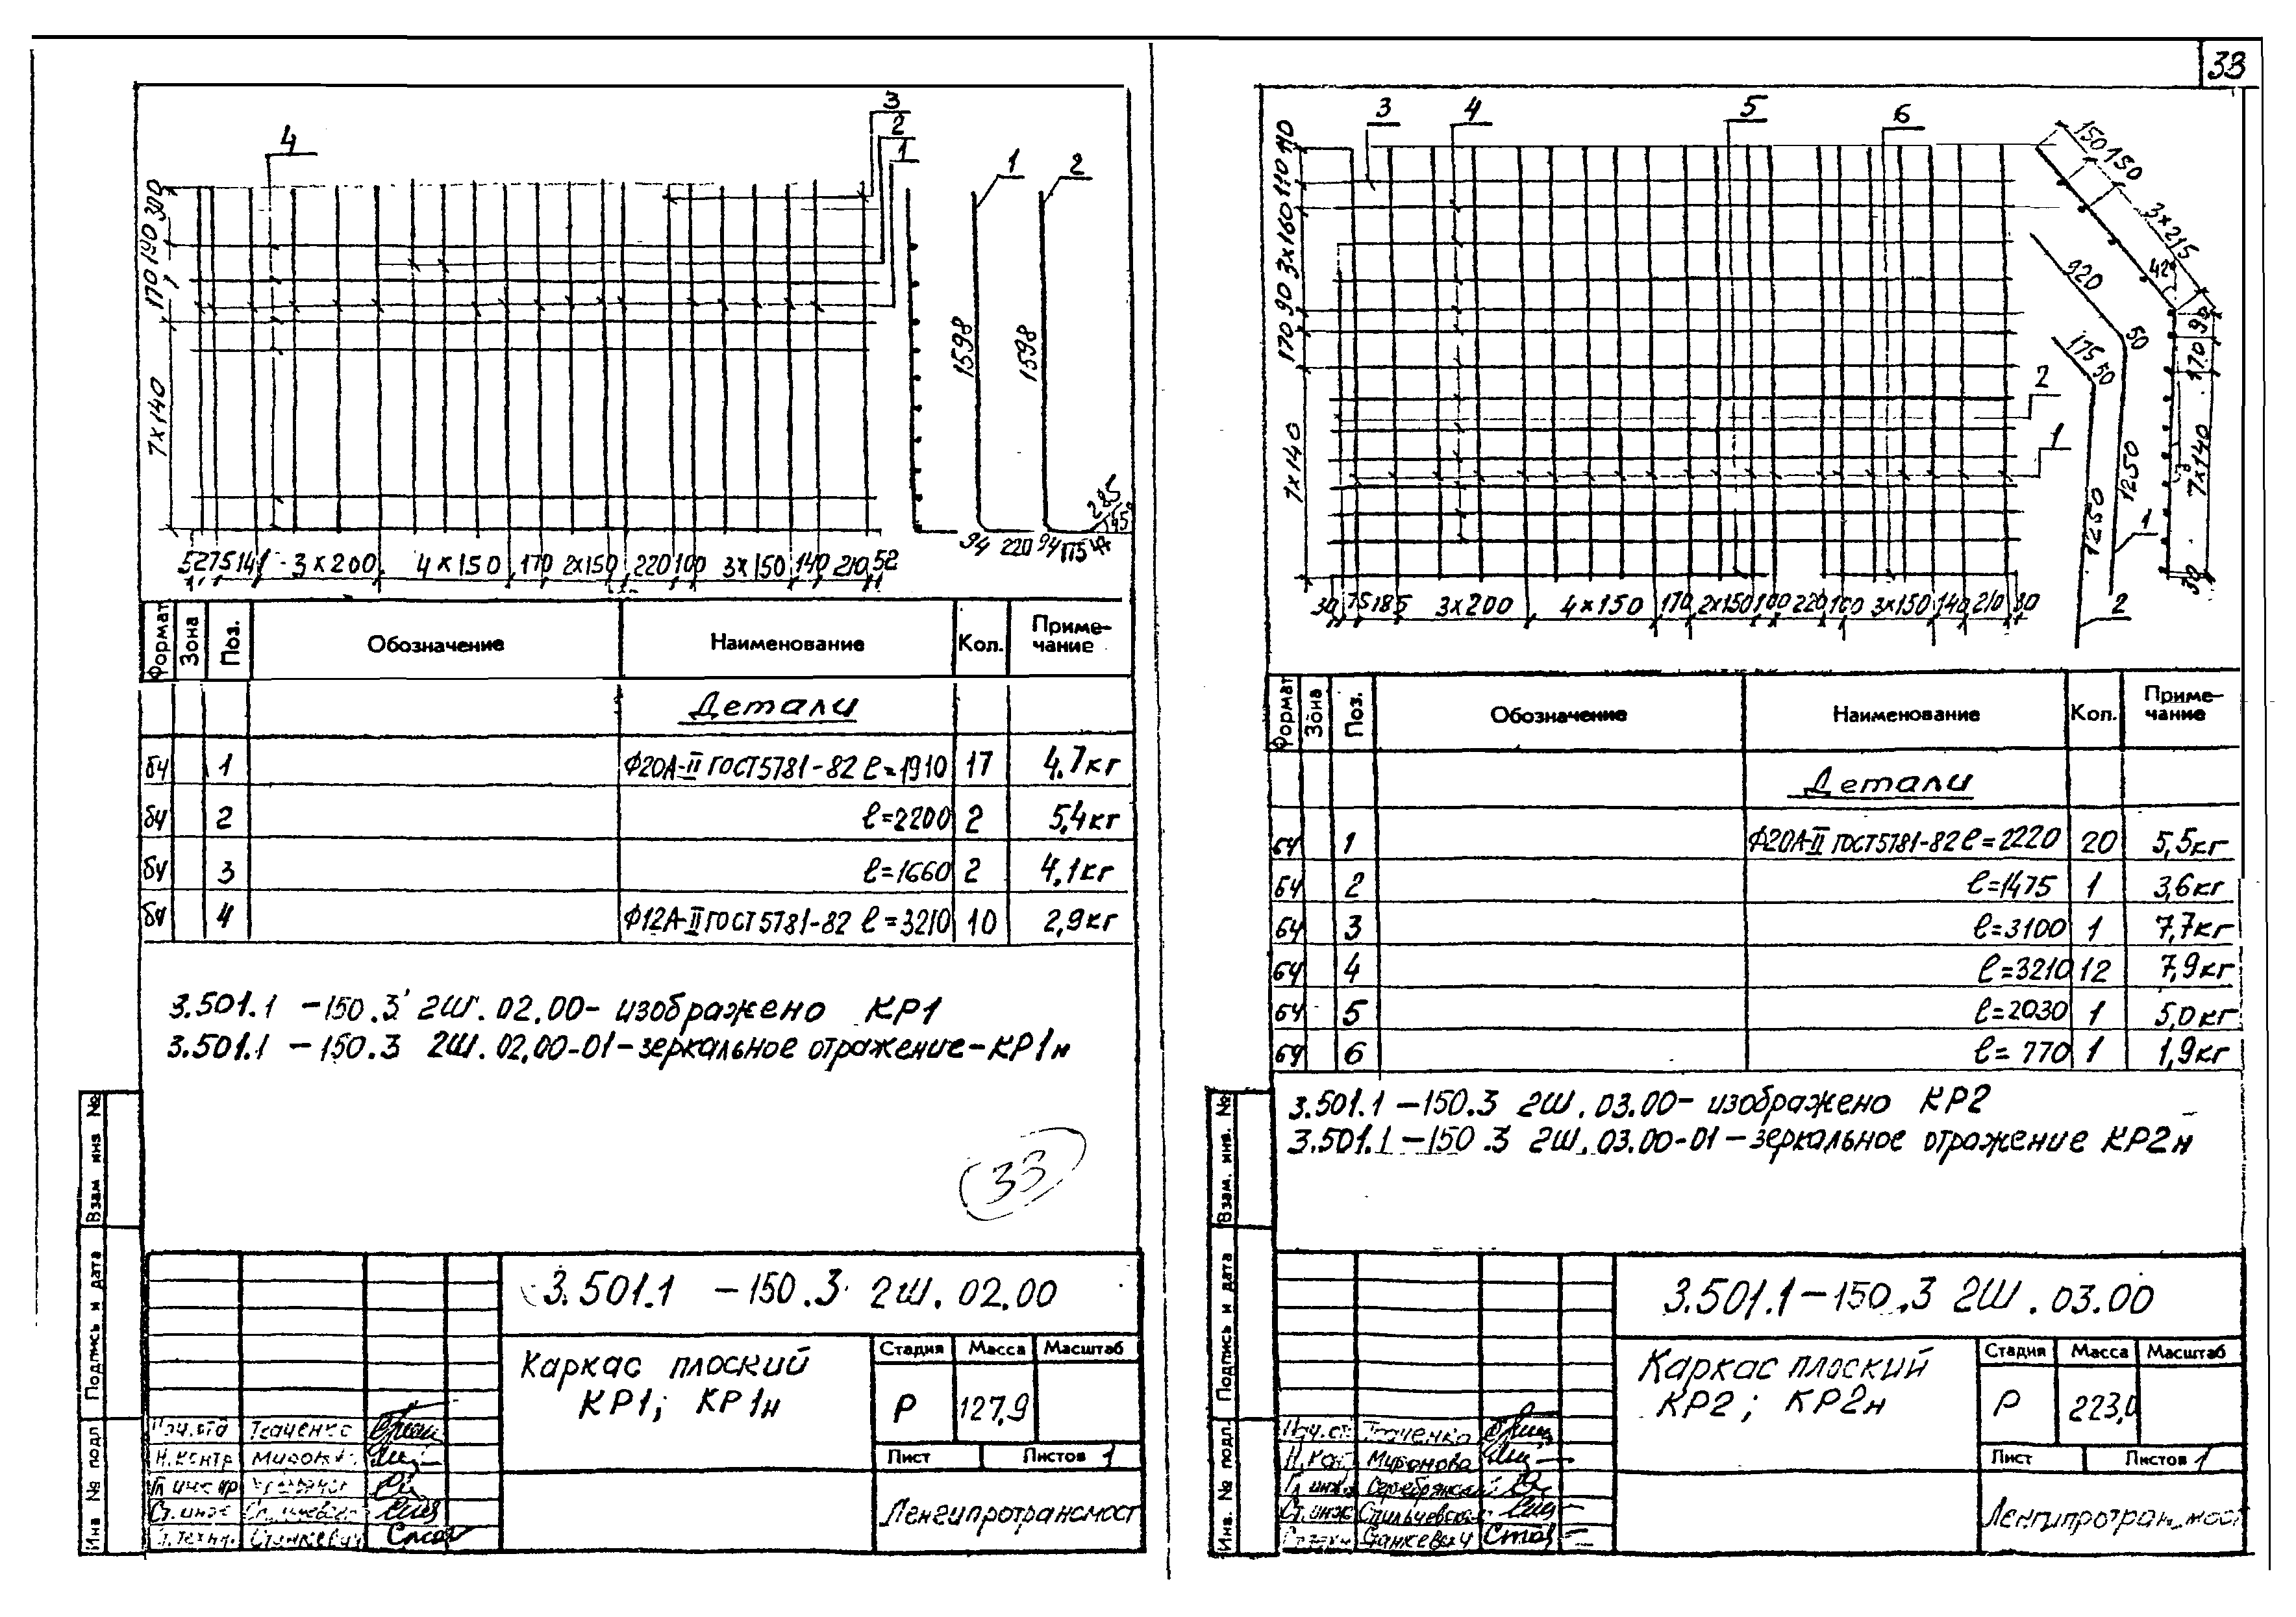 33
4
3
2
1
1
2
300
190
170
7×140
1598
1598
285
45°
94 220 94 175
52 75 141 3×200 4×150 170 2×150 220 100 3×150 140 210 52
Формат Зона Поз. Обозначение Наименование Кол. Приме-
чание
Детали
БЧ 1 Ф20А-II ГОСТ5781-82 ℓ=1910 17 4.7кг
БЧ 2 ℓ=2200 2 5,4кг
БЧ 3 ℓ=1660 2 4,1кг
БЧ 4 Ф12А-II ГОСТ5781-82 ℓ=3210 10 2,9кг
3.501.1 -150.3 2Ш.02.00- изображено КР1
3.501.1 - 150.3 2Ш.02.00-01-зеркальное отражение-КР1н
33
Взам инв №
Подпись и дата
Инв № подл
3.501.1 -150.3 2Ш.02.00
Каркас плоский
КР1; КР1н
Стадия Масса Масштаб
Р 127,9
Лист Листов 1
Ленгипротрансмост
Нач.отд Ткаченко
Н.контр
Гл инж пр
Ст.инж
Ст.техн. Станкевич
3 4 5 6
110
110
3×160
90
170
7×140
150 150
3×215
42°
320
50
175 50
90
170
7×140
1250
1250
2
1
1
2
30
30 75 185 3×200 4×150 170 2×150 100 220 100 3×150 140 210 30
Формат Зона Поз. Обозначение Наименование Кол. Приме-
чание
Детали
БЧ 1 Ф20А-II ГОСТ5781-82 ℓ=2220 20 5,5кг
БЧ 2 ℓ=1475 1 3,6кг
БЧ 3 ℓ=3100 1 7,7кг
БЧ 4 ℓ=3210 12 7,9кг
БЧ 5 ℓ=2030 1 5,0кг
БЧ 6 ℓ= 770 1 1,9кг
3.501.1 -150.3 2Ш.03.00- изображено КР2
3.501.1 -150.3 2Ш.03.00-01 - зеркальное отражение КР2н
Взам. инв. №
Подпись и дата
Инв. № подл.
3.501.1-150.3 2Ш.03.00
Каркас плоский
КР2; КР2н
Стадия Масса Масштаб
Р 223,0
Лист Листов 1
Ленгипротрансмост
Нач.от Ткаченко
Н.кон Миронова
Гл инж. Серебрянский
Ст.инж Спильчевская
Ст.техн Станкевич